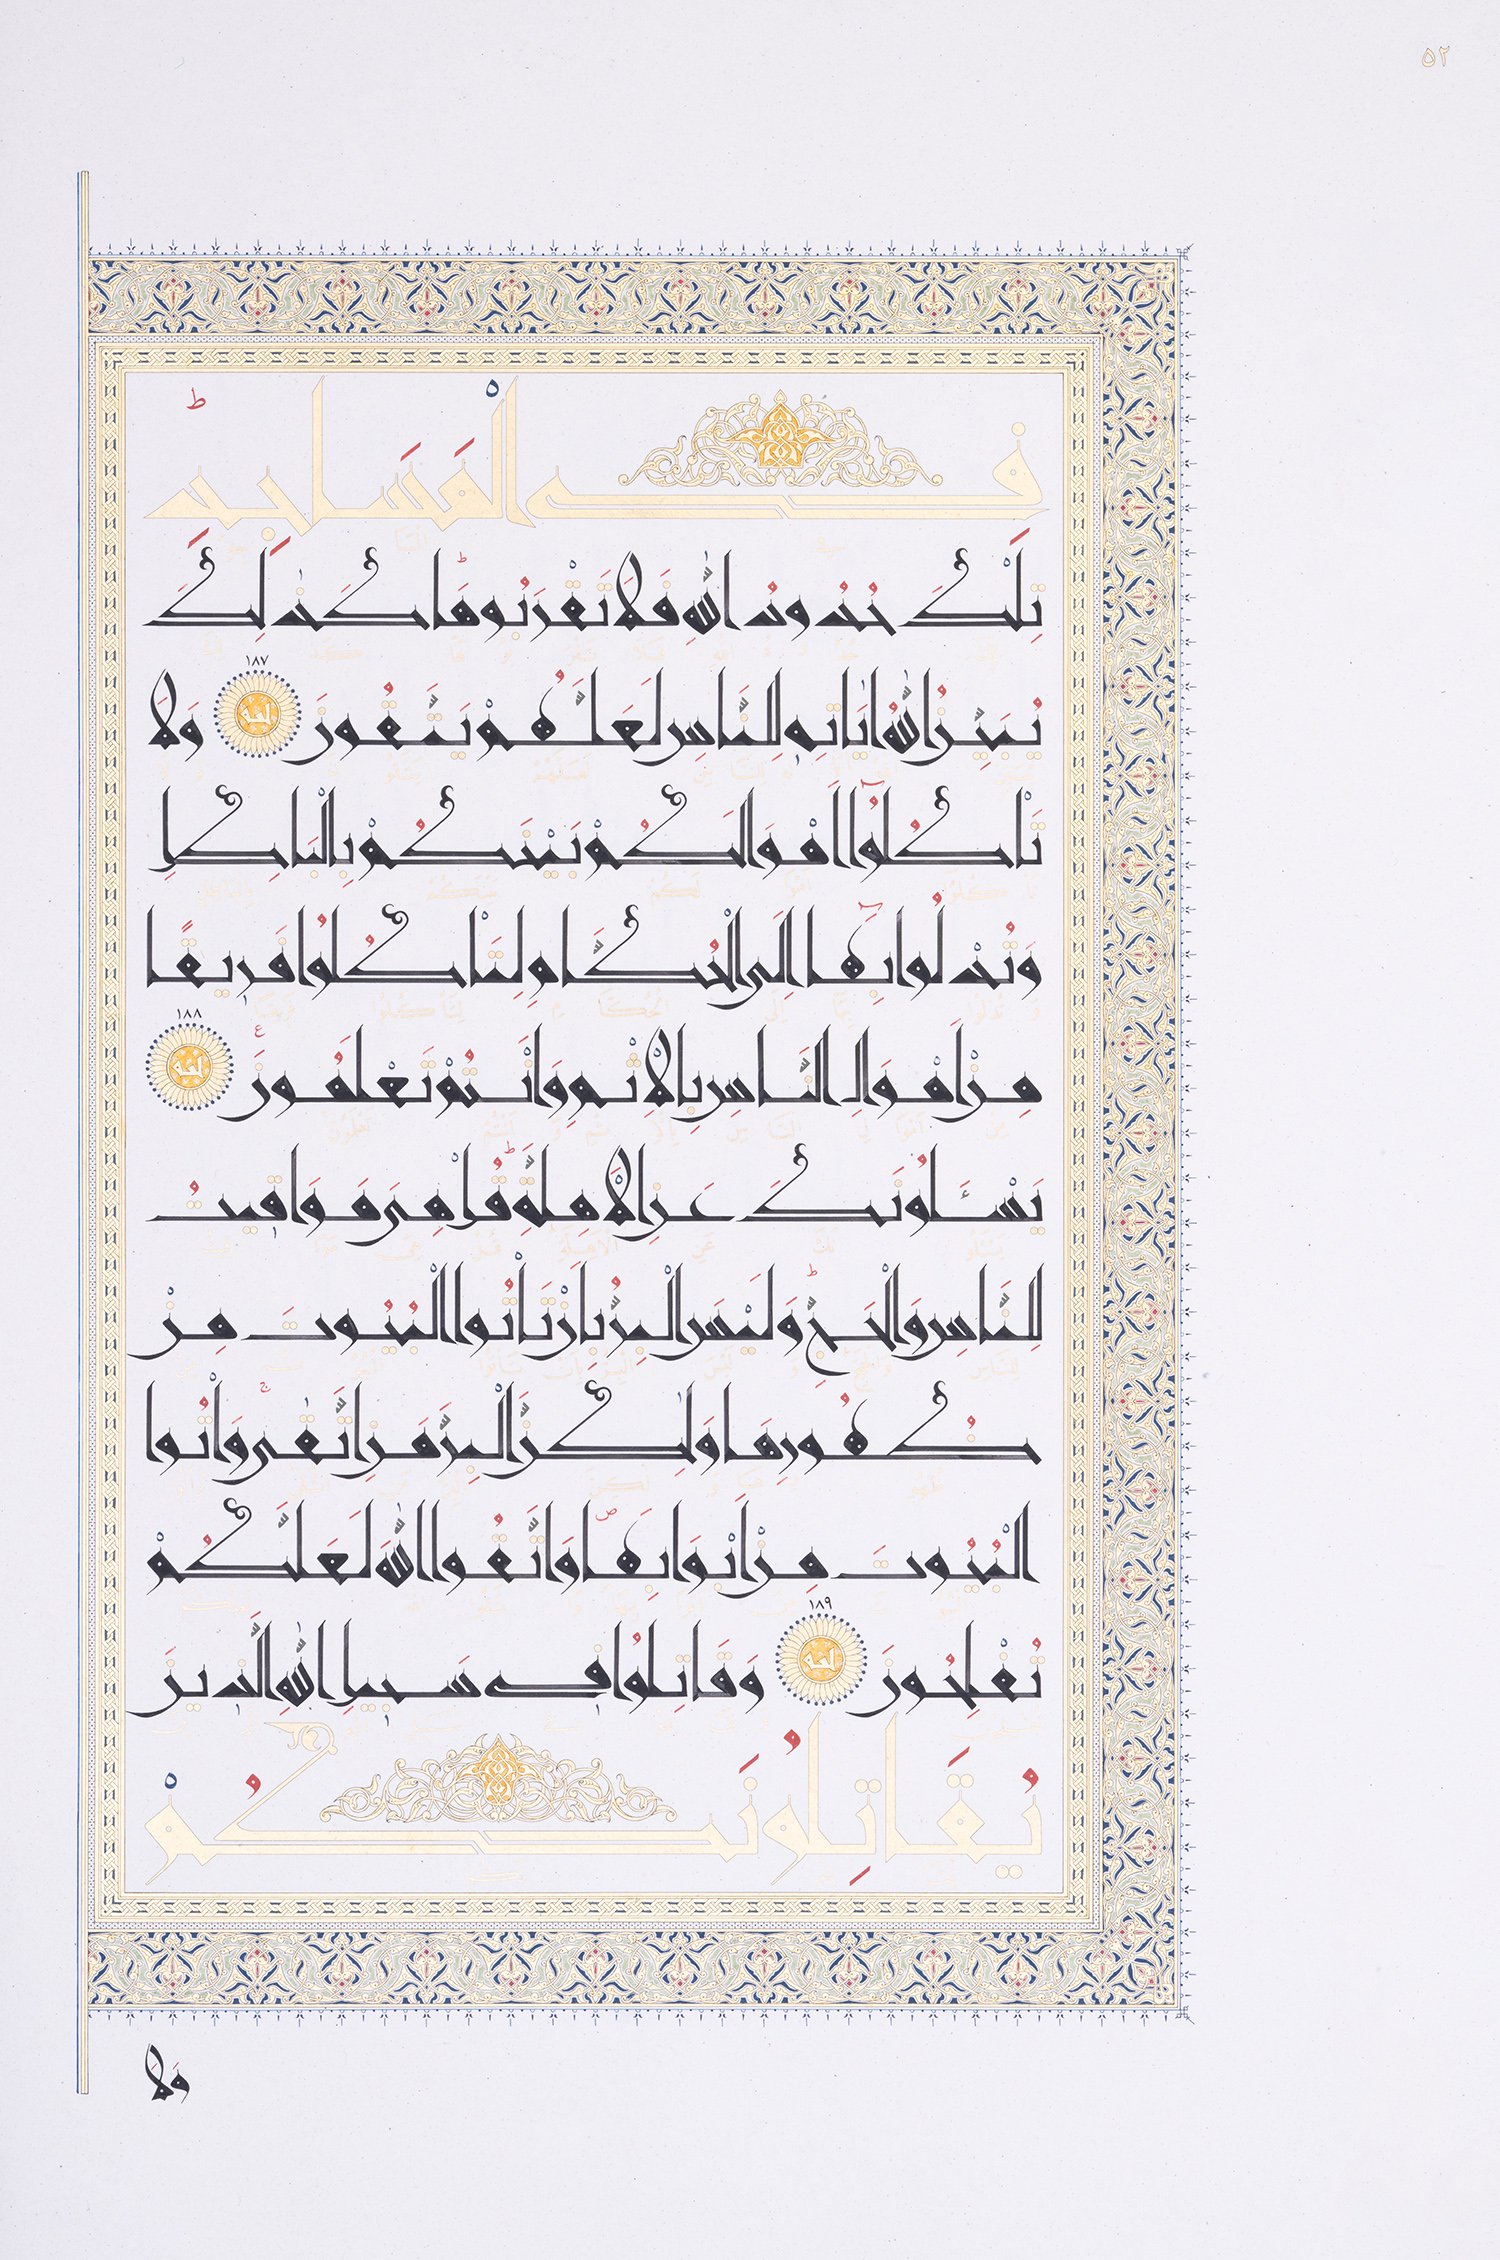 ٥٢
فِي الْمَسَاجِدِ ۗ
تِلْكَ حُدُودُ اللّٰهِ فَلَا تَقْرَبُوهَا ۗ كَذٰلِكَ
يُبَيِّنُ اللّٰهُ اٰيَاتِهِ لِلنَّاسِ لَعَلَّهُمْ يَتَّقُونَ ١٨٧ وَلَا
تَأْكُلُوٓا اَمْوَالَكُمْ بَيْنَكُمْ بِالْبَاطِلِ
وَتُدْلُوا بِهَآ اِلَى الْحُكَّامِ لِتَأْكُلُوا فَرِيقًا
مِنْ اَمْوَالِ النَّاسِ بِالْاِثْمِ وَاَنْتُمْ تَعْلَمُونَ ١٨٨
يَسْـَٔلُونَكَ عَنِ الْاَهِلَّةِ ۗ قُلْ هِيَ مَوَاقِيتُ
لِلنَّاسِ وَالْحَجِّ ۗ وَلَيْسَ الْبِرُّ بِاَنْ تَأْتُوا الْبُيُوتَ مِنْ
ظُهُورِهَا وَلٰكِنَّ الْبِرَّ مَنِ اتَّقٰى ۚ وَأْتُوا
الْبُيُوتَ مِنْ اَبْوَابِهَا ۖ وَاتَّقُوا اللّٰهَ لَعَلَّكُمْ
تُفْلِحُونَ ١٨٩ وَقَاتِلُوا فِي سَبِيلِ اللّٰهِ الَّذِينَ
يُقَاتِلُونَكُمْ
وَلَا